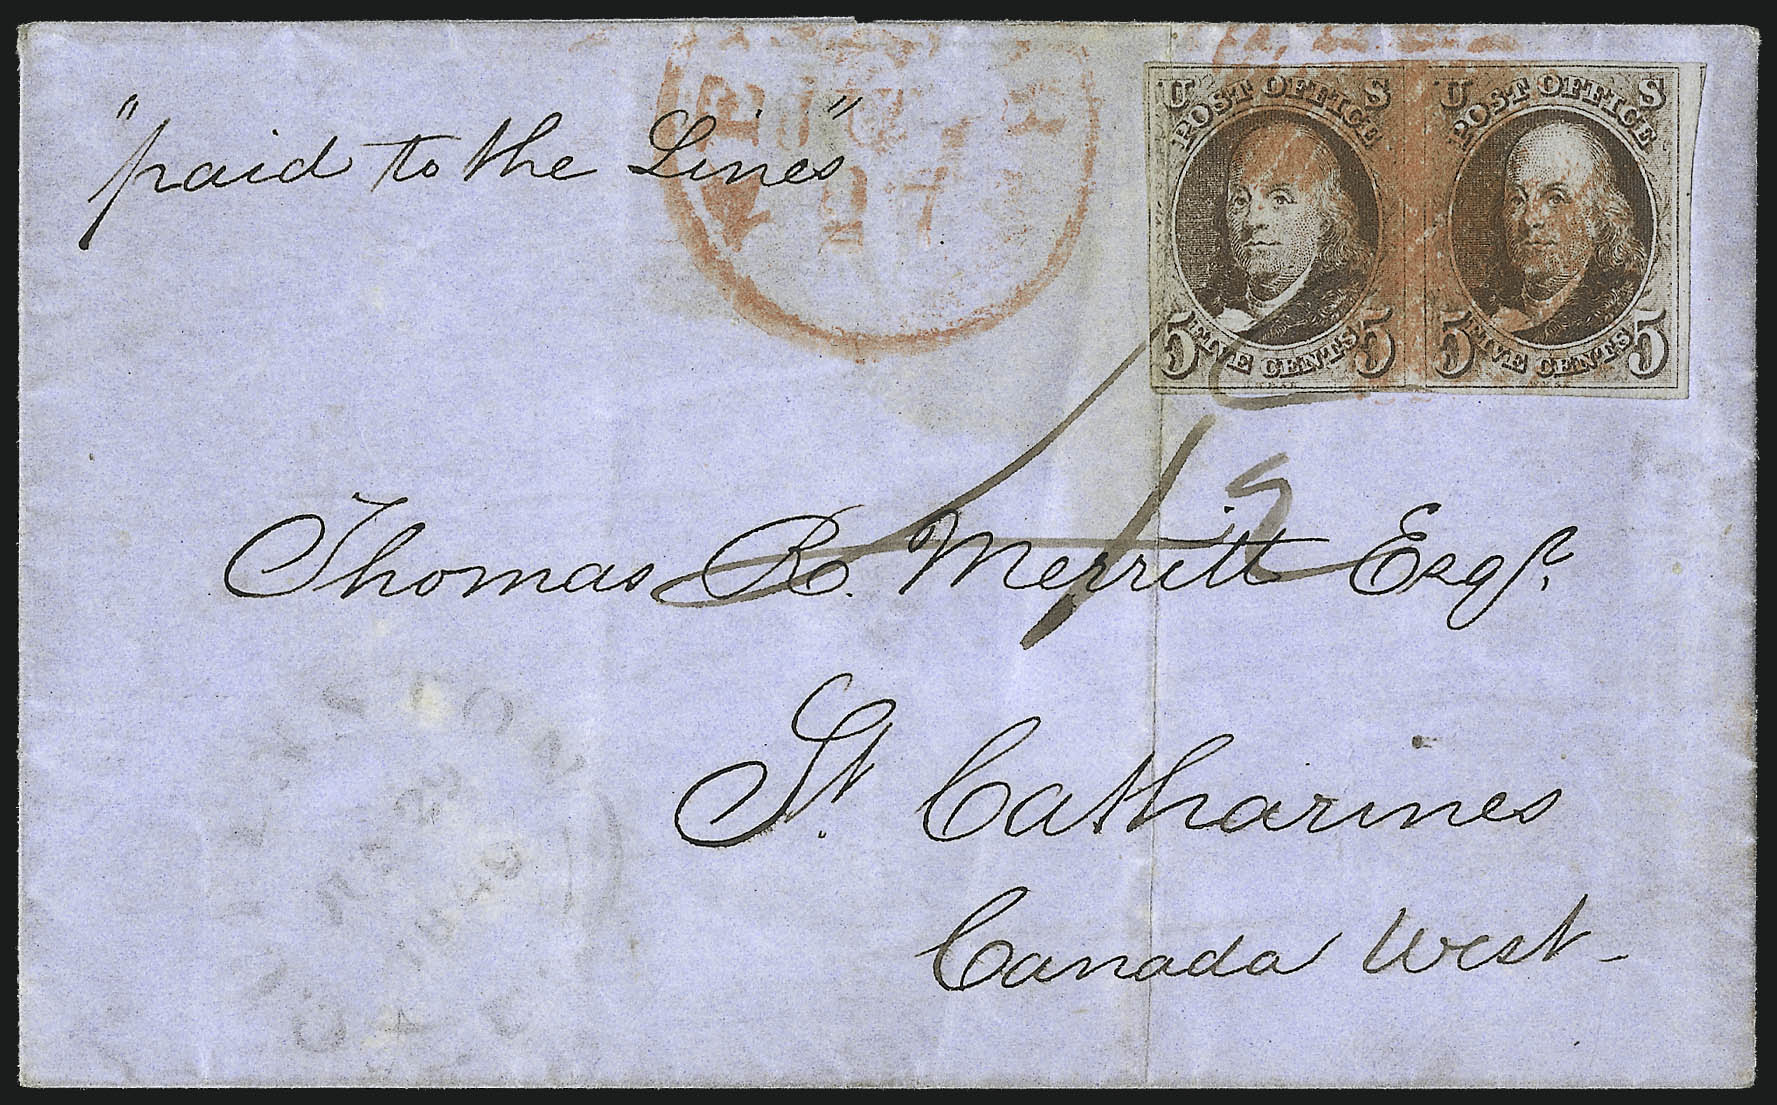 "paid to the Lines"
U S U S
POST OFFICE POST OFFICE
5 FIVE CENTS 5 5 FIVE CENTS 5
Thomas R. Merritt Esqr.
St. Catharines
Canada West